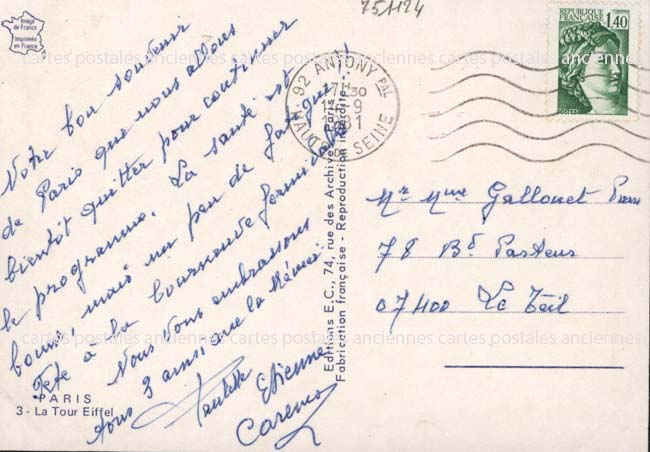 751124
Image
de France
Imprimée
en France
REPUBLIQUE
FRANÇAISE
1,40
92 ANTONY PAL
17H30
1981
HAUTS DE SEINE
Notre bon souvenir
de Paris que nous allons
bientôt quitter pour continuer
le programme. La santé est
bonne, mais un peu de fatigue!
Fête à la bourgeoise formidable!
Nous vous embrassons
tous 3 ainsi que la Mémée.
Paulette Etienne
PARIS
3 - La Tour Eiffel
Editions E.C., 74, rue des Archives - Paris
Fabrication française - Reproduction interdite
Mr Mme Gallonet Pierre
78 Bd Pasteur
07400 Le Teil
cartes postales anciennes cartes postales anciennes cartes postales anciennes
cartes postales anciennes cartes postales anciennes cartes postales anciennes